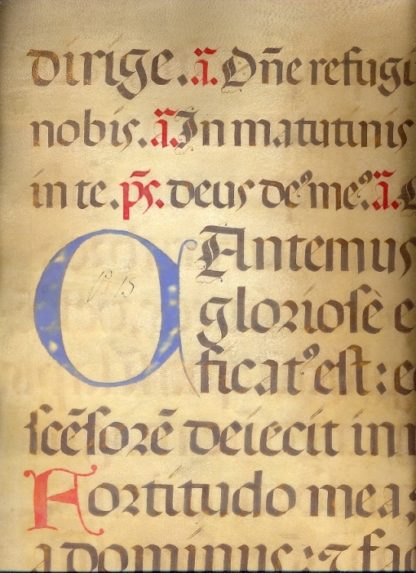 dirige. ã. Dñe refugi
nobis. ã. In matutinis
in te. ps̃. deus deꝰ meꝰ. ã.
CAntemus
glorioſē e
ficatꝰ eſt: e
ſcēſorē deiecit in
Fortitudo mea
a dominus: ⁊ fac